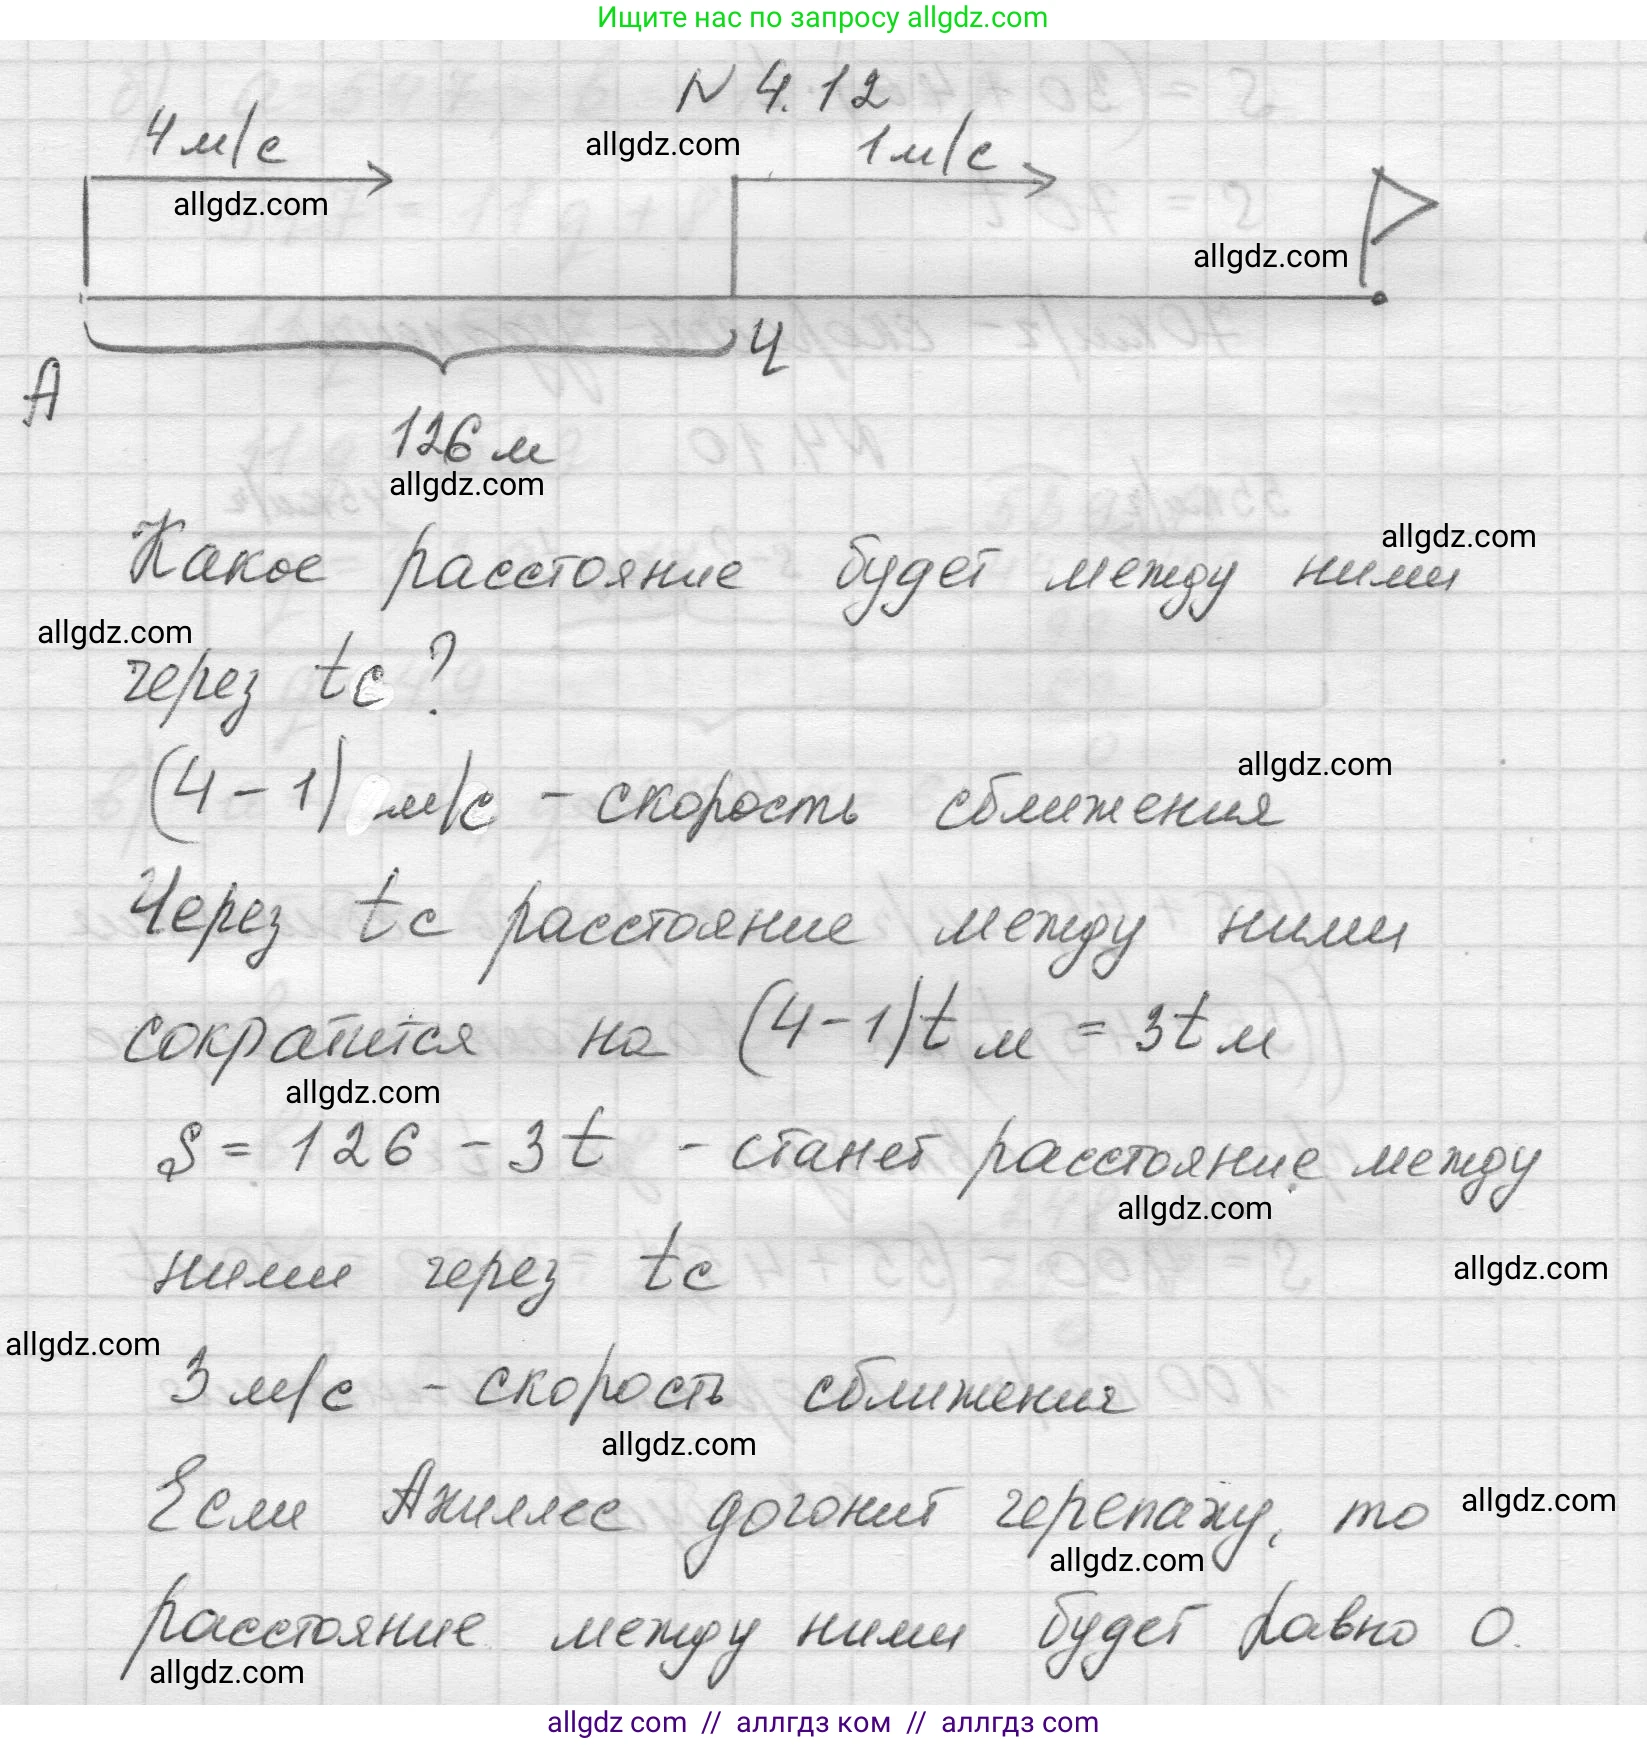 Ищите нас по запросу allgdz.com
N 4.12
4 м/с
allgdz.com
1 м/с
allgdz.com
allgdz.com
Ч
А
126 м
allgdz.com
Какое расстояние будет между ними
allgdz.com
allgdz.com
через tс?
allgdz.com
(4-1) м/с - скорость сближения
Через tс расстояние между ними
сократится на (4-1)t м = 3t м
allgdz.com
S = 126 - 3t - станет расстояние между
allgdz.com
ними через tс
allgdz.com
allgdz.com
3 м/с - скорость сближения
allgdz.com
Если Ахиллес догонит черепаху, то
allgdz.com
allgdz.com
расстояние между ними будет равно 0.
allgdz.com
allgdz com // аллгдз ком // аллгдз com